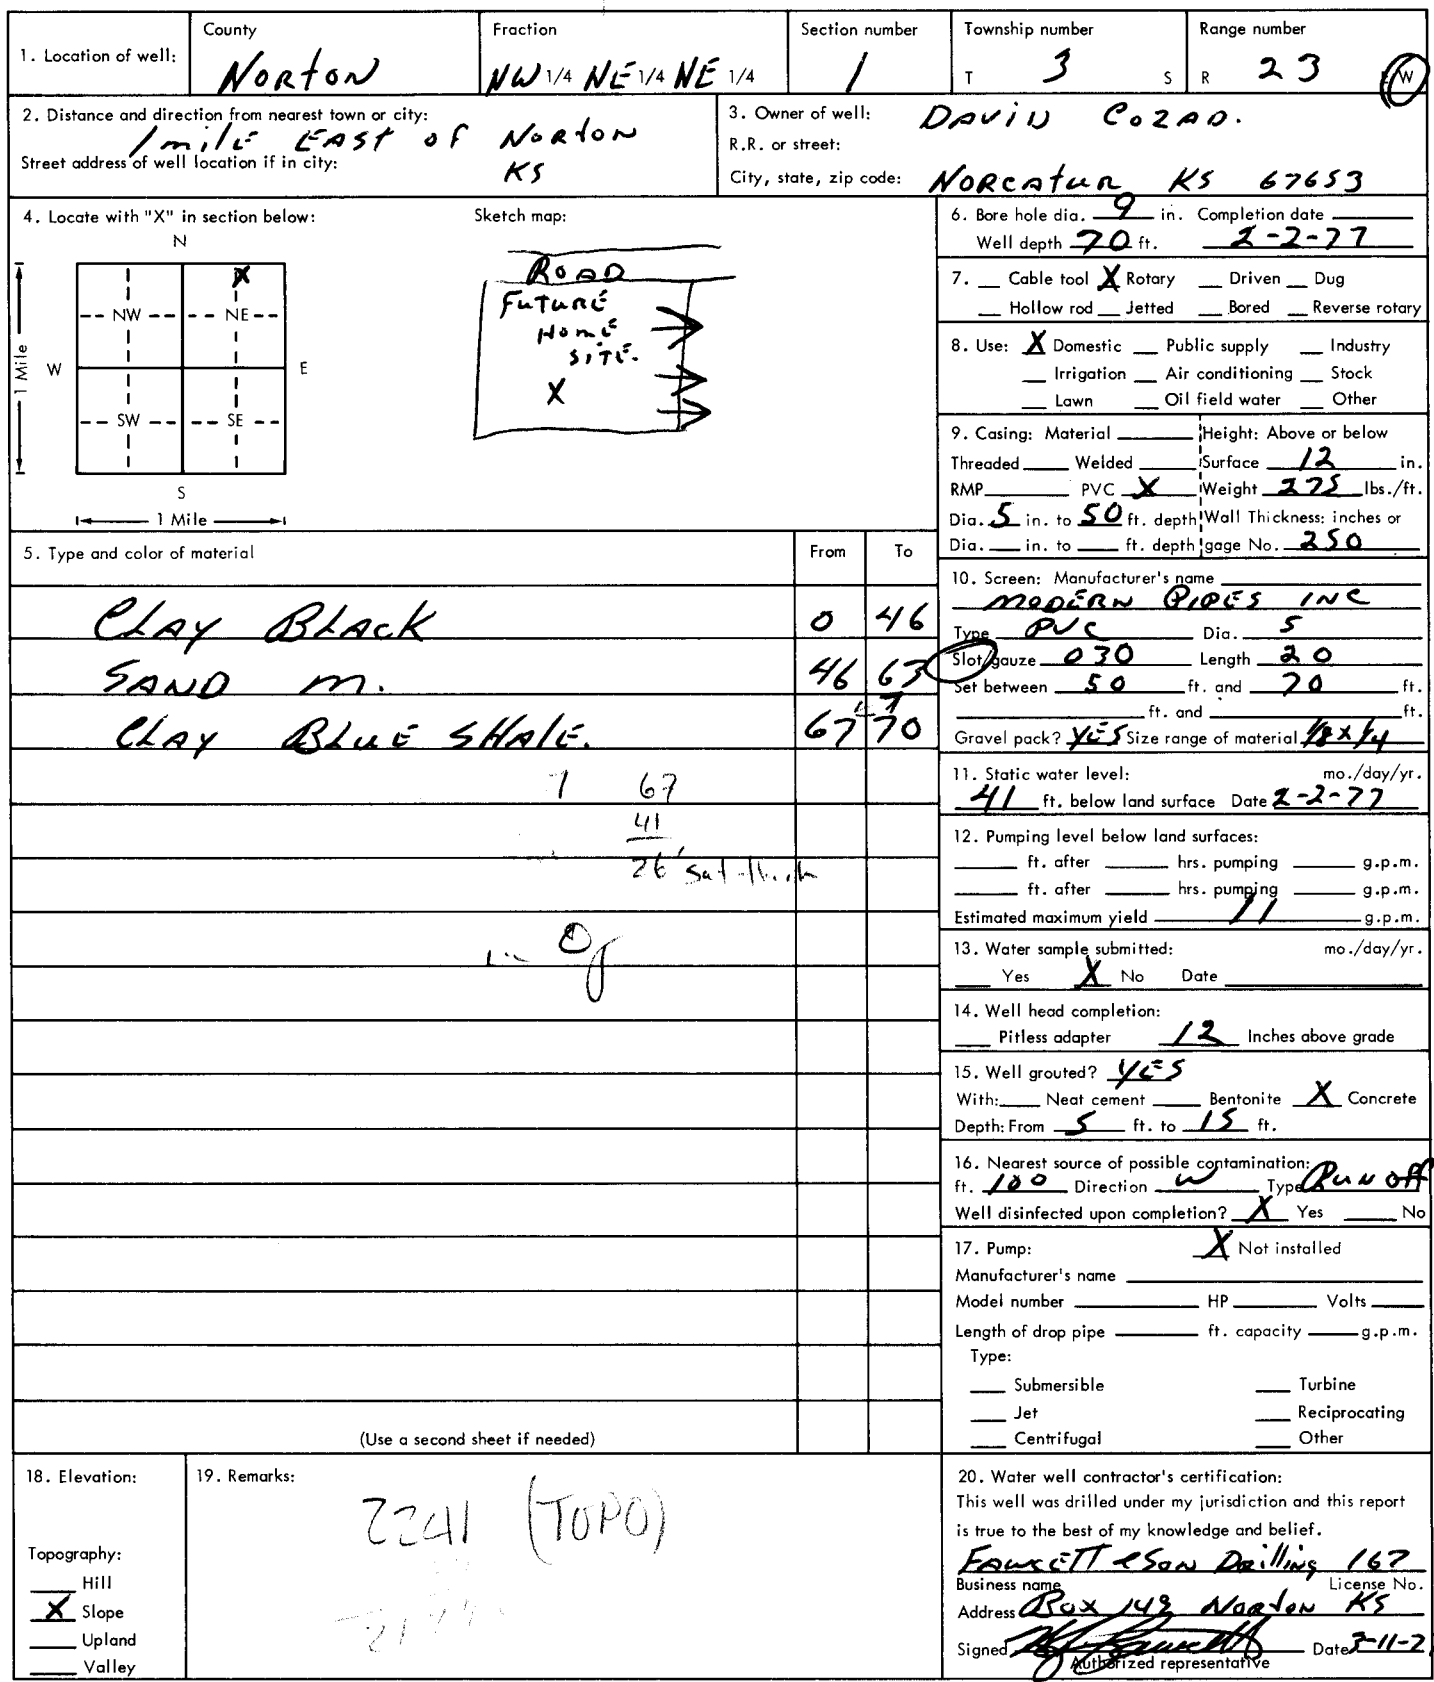 County Fraction Section number Township number Range number
1. Location of well: Norton NW 1/4 NE 1/4 NE 1/4 1 T 3 S R 23 W
2. Distance and direction from nearest town or city:
1 mile EAST of Norton
Street address of well location if in city: KS
3. Owner of well: DAVID COZAD.
R.R. or street:
City, state, zip code: Norcatur KS 67653
4. Locate with "X" in section below:
N
X
NW NE
W E
SW SE
S
1 Mile
1 Mile
Sketch map:
ROAD
FUTURE
HOME
SITE.
X
5. Type and color of material From To
CLAY BLACK 0 46
SAND m. 46 63
67
CLAY BLUE SHALE. 67 70
67
41
26' Sat thick
Of
(Use a second sheet if needed)
6. Bore hole dia. 9 in. Completion date
Well depth 70 ft. 2-2-77
7. Cable tool X Rotary Driven Dug
Hollow rod Jetted Bored Reverse rotary
8. Use: X Domestic Public supply Industry
Irrigation Air conditioning Stock
Lawn Oil field water Other
9. Casing: Material Height: Above or below
Threaded Welded Surface 12 in.
RMP PVC X Weight 275 lbs./ft.
Dia. 5 in. to 50 ft. depth Wall Thickness: inches or
Dia. in. to ft. depth gage No. 250
10. Screen: Manufacturer's name
MODERN PIPES INC
Type PVC Dia. 5
Slot/gauze 030 Length 20
Set between 50 ft. and 70 ft.
ft. and ft.
Gravel pack? YES Size range of material 1/8 x 1/4
11. Static water level: mo./day/yr.
41 ft. below land surface Date 2-2-77
12. Pumping level below land surfaces:
ft. after hrs. pumping g.p.m.
ft. after hrs. pumping g.p.m.
Estimated maximum yield 11 g.p.m.
13. Water sample submitted: mo./day/yr.
Yes X No Date
14. Well head completion:
Pitless adapter 12 Inches above grade
15. Well grouted? YES
With: Neat cement Bentonite X Concrete
Depth: From 5 ft. to 15 ft.
16. Nearest source of possible contamination:
ft. 100 Direction W Type Run off
Well disinfected upon completion? X Yes No
17. Pump: X Not installed
Manufacturer's name
Model number HP Volts
Length of drop pipe ft. capacity g.p.m.
Type:
Submersible Turbine
Jet Reciprocating
Centrifugal Other
18. Elevation:
Topography:
Hill
X Slope
Upland
Valley
19. Remarks:
2241 (TOPO)
20. Water well contractor's certification:
This well was drilled under my jurisdiction and this report
is true to the best of my knowledge and belief.
FAWCETT & Son Drilling 167
Business name License No.
Address Box 148 Norton KS
Signed Date 3-11-7
Authorized representative